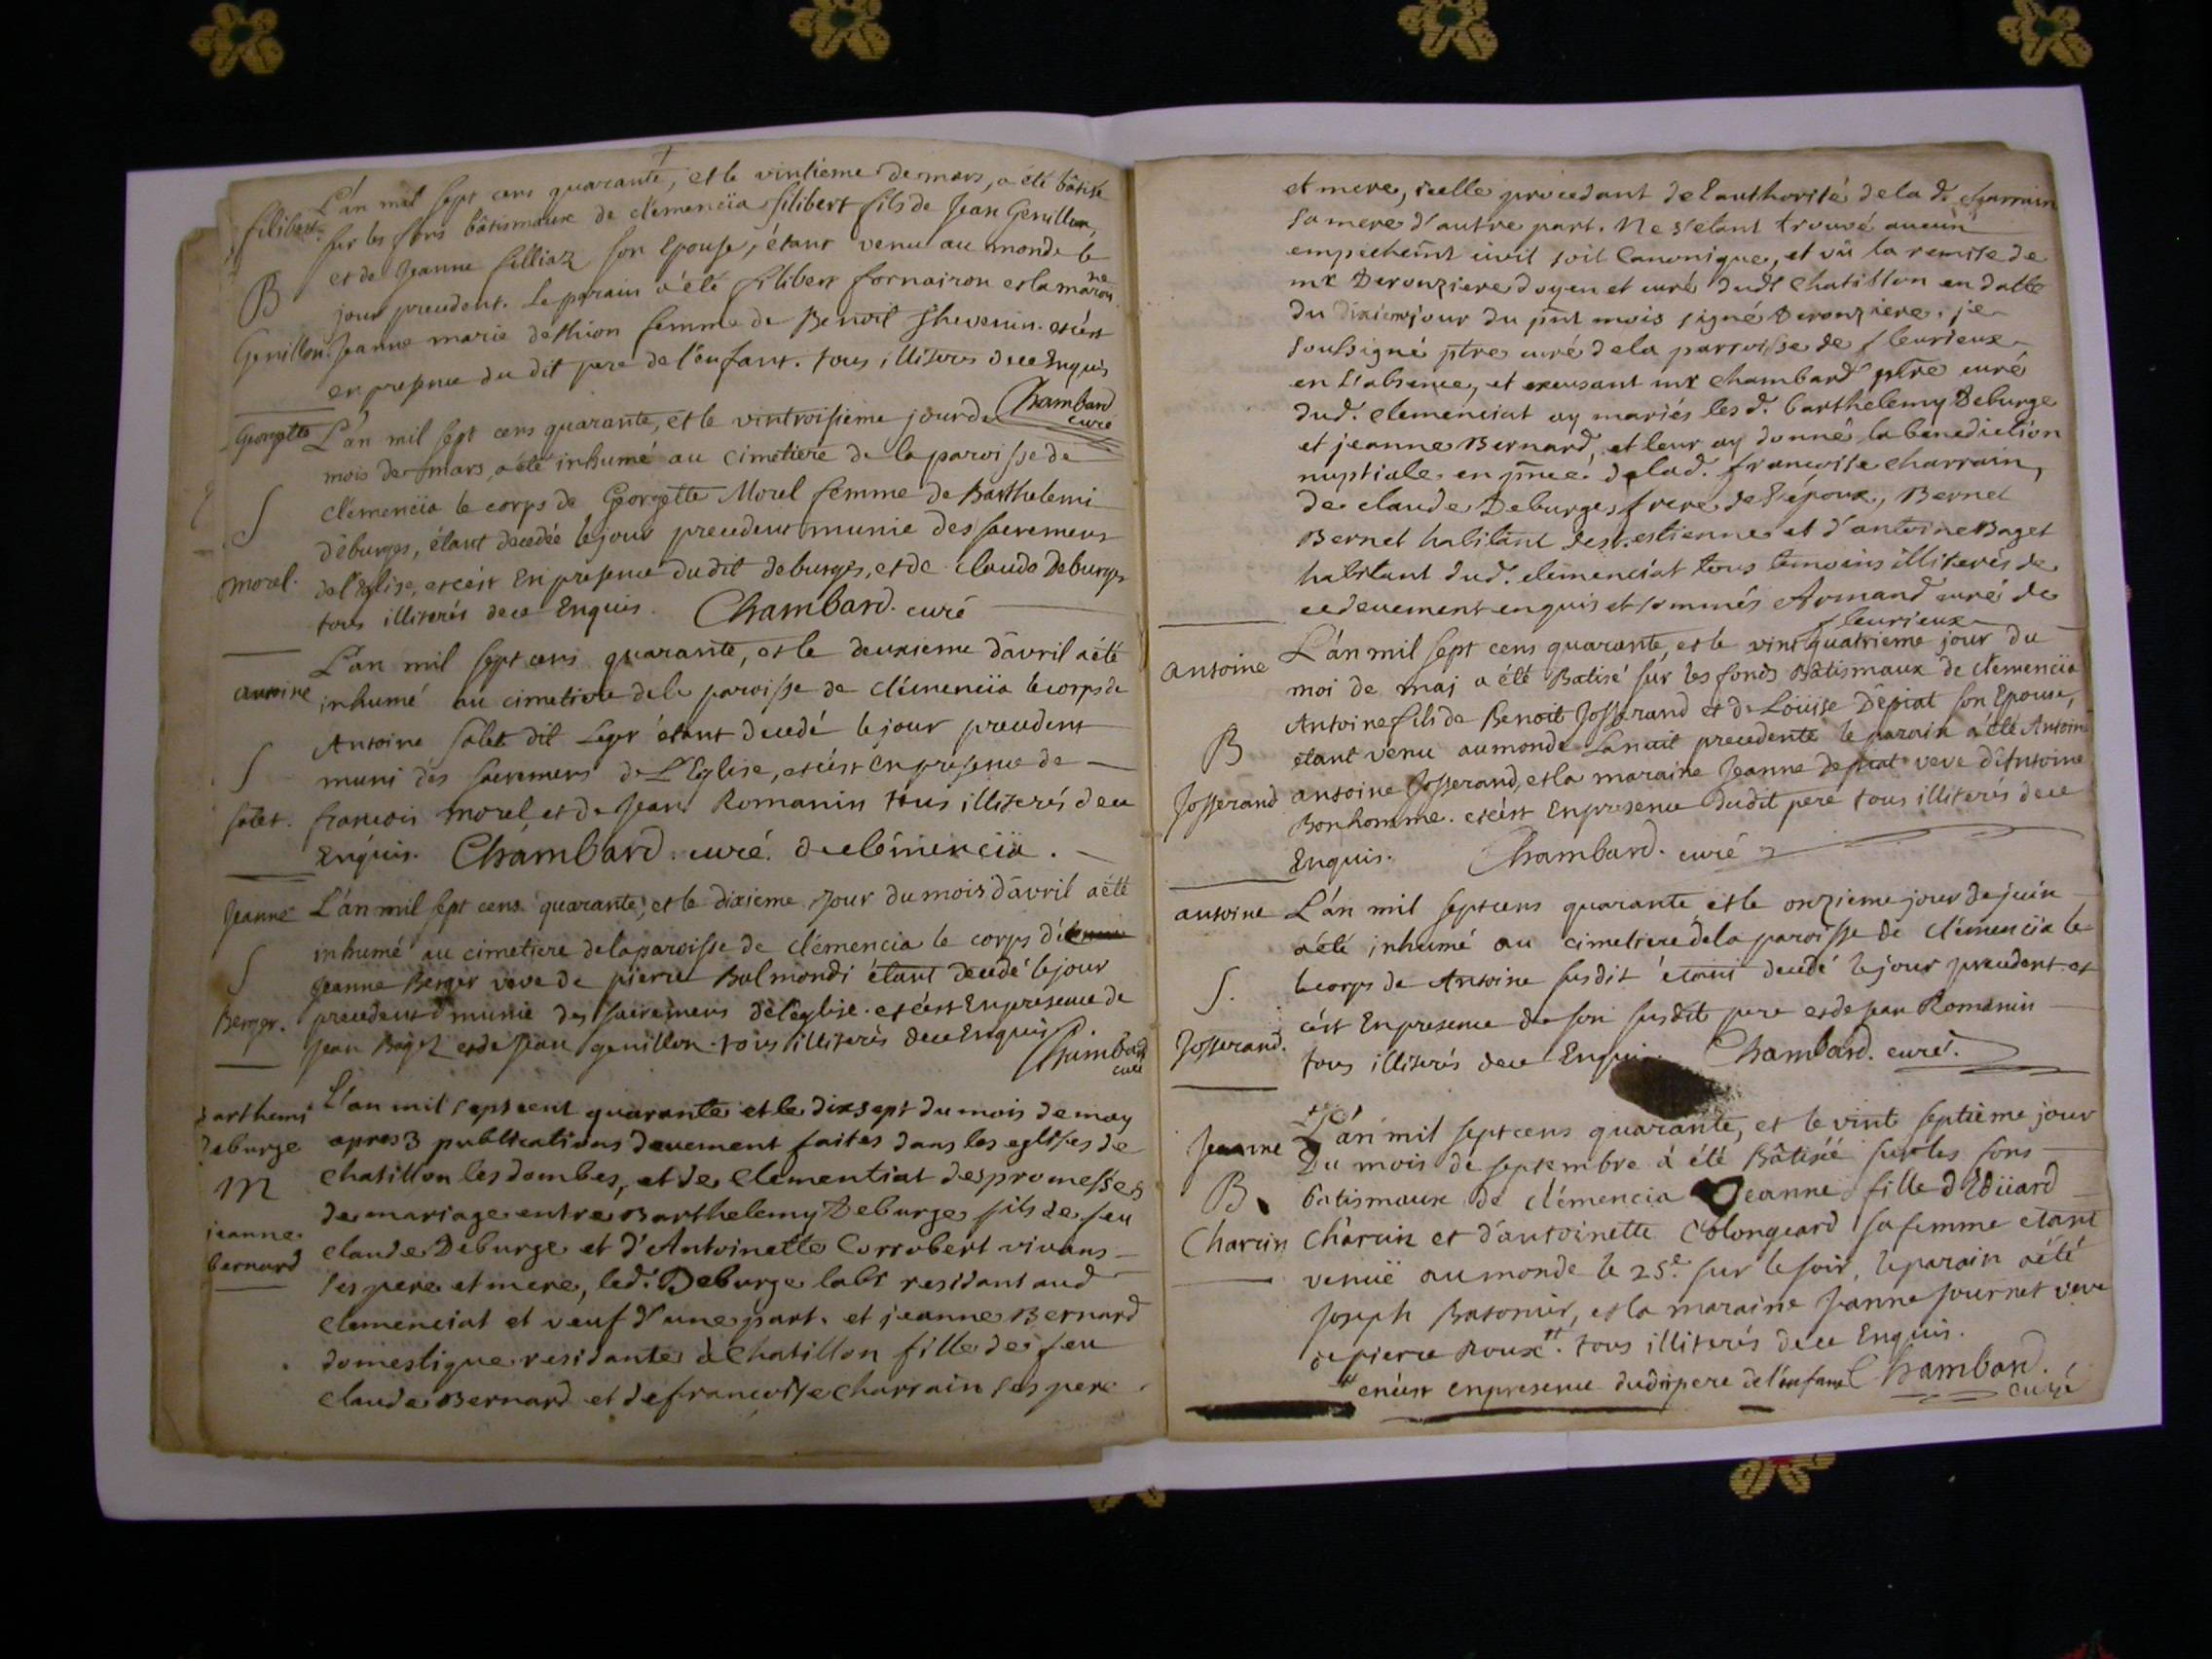 L'an mil sept cens quarante, et le vintieme de mars, a été bâtisé
filibert sur les fons bâtismaux de clemenciia filibert fils de Jean Genillon,
et de Jeanne filliaz son Epouse, étant venu au monde le
B jour precedent. Le parain a été filibert fornairon et la maraine
Genillon Jeanne marie dethion femme de Benoit Thevenin. et c'est
en presence du dit pere de l'enfant. tous illiterés de ce Enquis
Chambard curé
Georgette L'an mil sept cens quarante, et le vintroisieme jour de
mois de mars, a été inhumé au cimetiere de la paroisse de
S clémenciia le corps de Georgette Morel femme de Barthelemi
Déburges, étant decedée le jour precedent munie des sacremens
morel. de l'Eglise, et c'est En présence du dit deburges, et de claude Deburges
tous illiterés de ce Enquis. Chambard. curé
L'an mil sept cens quarante, et le deuxieme d'avril a été
antoine inhumé au cimetiere de la paroisse de clémenciia le corps de
Antoine salet dit Leger étant decedé le jour precedent
S muni des sacremens de L'Eglise, et c'est En presence de
salet. francois morel, et de Jean Romanin tous illiterés de ce
Enquis. Chambard. curé. de clémenciia.
Jeanne L'an mil sept cens quarante, et le dixieme jour du mois d'avril a été
inhumé au cimetiere de la paroisse de clémencia le corps de
S Jeanne Berger veve de pierre Balmondi étant decedé le jour
Berger. precedent munie des sacremens de l'église. et c'est En presence de
Jean Baget et de Jean genillon tous illiterés de ce Enquis.
Chambard curé
Barthemi L'an mil sept cent quarante et le dix sept du mois de may
Deburge apres 3 publications deuement faites dans les eglises de
M chatillon les dombes, et de clementiat des promesses
de mariage entre Barthelemy Deburge fils de feu
jeanne claude Deburge et d'Antoinette Corrobert vivans
bernard ses pere et mere, led. Deburge labr residant aud
clemenciat et veuf d'une part. et jeanne Bernard
domestique residante à Chatillon fille de feu
claude Bernard et de francoise charrain ses pere
et mere, icelle procedant de l'authorité de la d. charrain
sa mere d'autre part. Ne s'etant trouvé aucun
empechemt civil soit Canonique, et vû la remise de
mr Deronziere doyen et curé dudt Chatillon en datte
du dixieme jour du pnt mois signé Deronziere. je
soussigné ptre curé de la parroisse de fleurieux
en L'absence, et excusant mr chambard ptre curé
dud. clemenciat ay mariés les d. barthelemy Deburge
et jeanne Bernard, et leur ay donné la benediction
nuptiale en pnce de la d. francoise charrain,
de claude Deburge, frere de l'époux, Bernet
Bernet habitant de st. estienne et d'antoine Baget
habitant dud. clemenciat tous temoins illiterés de
ce deuement enquis et sommés Armand curé de
fleurieux
antoine L'an mil sept cens quarante, et le vint quatrieme jour du
moi de maj a été Batisé sur les fonds Bâtismaux de clemenciia
Antoine fils de Benoit Josserand et de Loüise Dépiat son Epouse,
B étant venu au monde La nuit precedente le parain a été Antoine
Josserand antoine Josserand, et la maraine Jeanne depiat veve d'Antoine
Bonhomme. et c'est En presence du dit pere tous illiterés de ce
Enquis. Chambard. curé
antoine L'an mil sept cens quarante, et le onzieme jour de juin
a été inhumé au cimetiere de la paroisse de clémenciia le
S. le corps de Antoine susdit étant decedé le jour precedent et
c'est En presence de son susdit pere et de jean Romanin
Josserand. tous illiterés de ce Enquis. Chambard. curé.
Jeanne L'an mil sept cens quarante, et le vint septième jour
Du mois de septembre a été Bâtisée sur les fons
B. batismaux de clémencia Jeanne fille d'Edüard
Charcin Charcin et d'antoinette Colongeard sa femme etant
venuë au monde le 25e. sur le soir, le parain a été
Joseph Batonier, et la maraine Jeanne journet veve
de pierre Roux. tous illiterés de ce Enquis.
et c'est en presence dudit pere de l'enfant Chambard.
curé